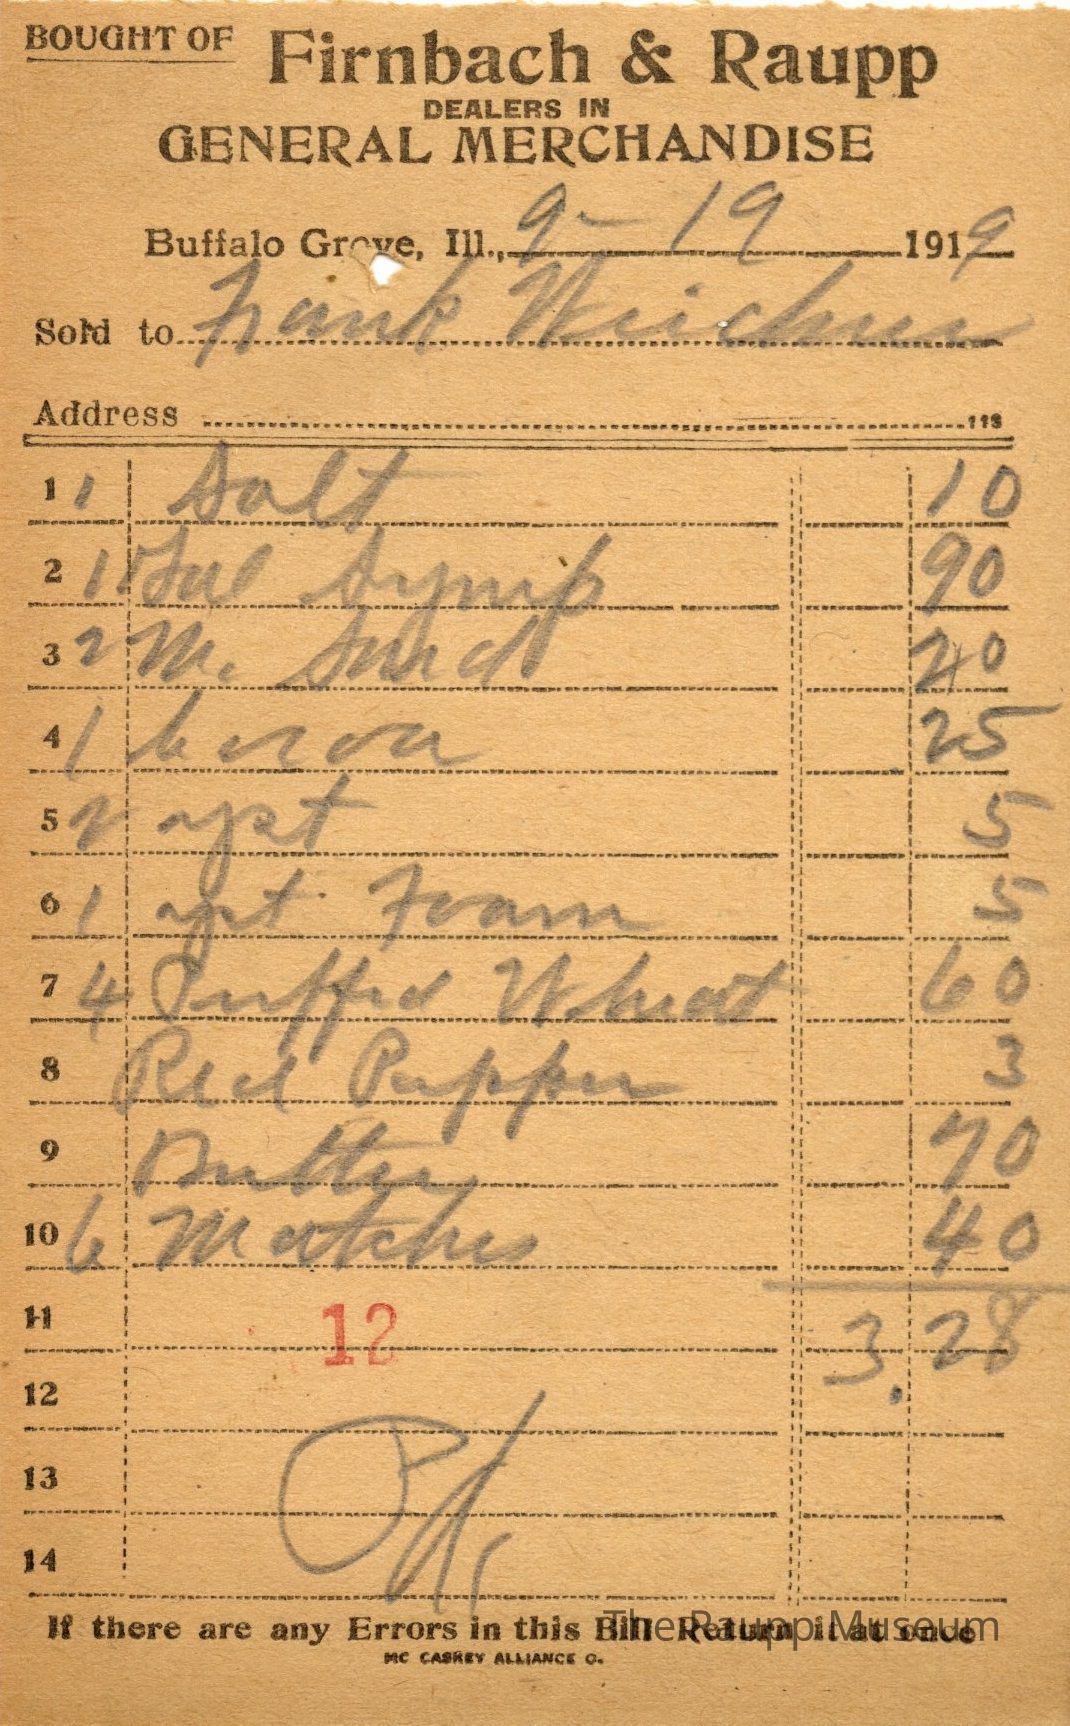 BOUGHT OF Firnbach & Raupp
DEALERS IN
GENERAL MERCHANDISE
Buffalo Grove, Ill., 9 - 19 1919
Sold to Frank
Address 118
1 1 Salt 10
2 1 Gal Syrup 90
3 2 M. Seed 20
4 1 Cocoa 25
5 2 yst 5
6 1 yst Foam 5
7 4 Puffed Wheat 60
8 Red Pepper 3
9 Butter 70
10 6 Matches 40
11 12 3.28
12
13 Pd
14
If there are any Errors in this Bill Return it at once
The Raupp Museum
MC CASKEY ALLIANCE O.